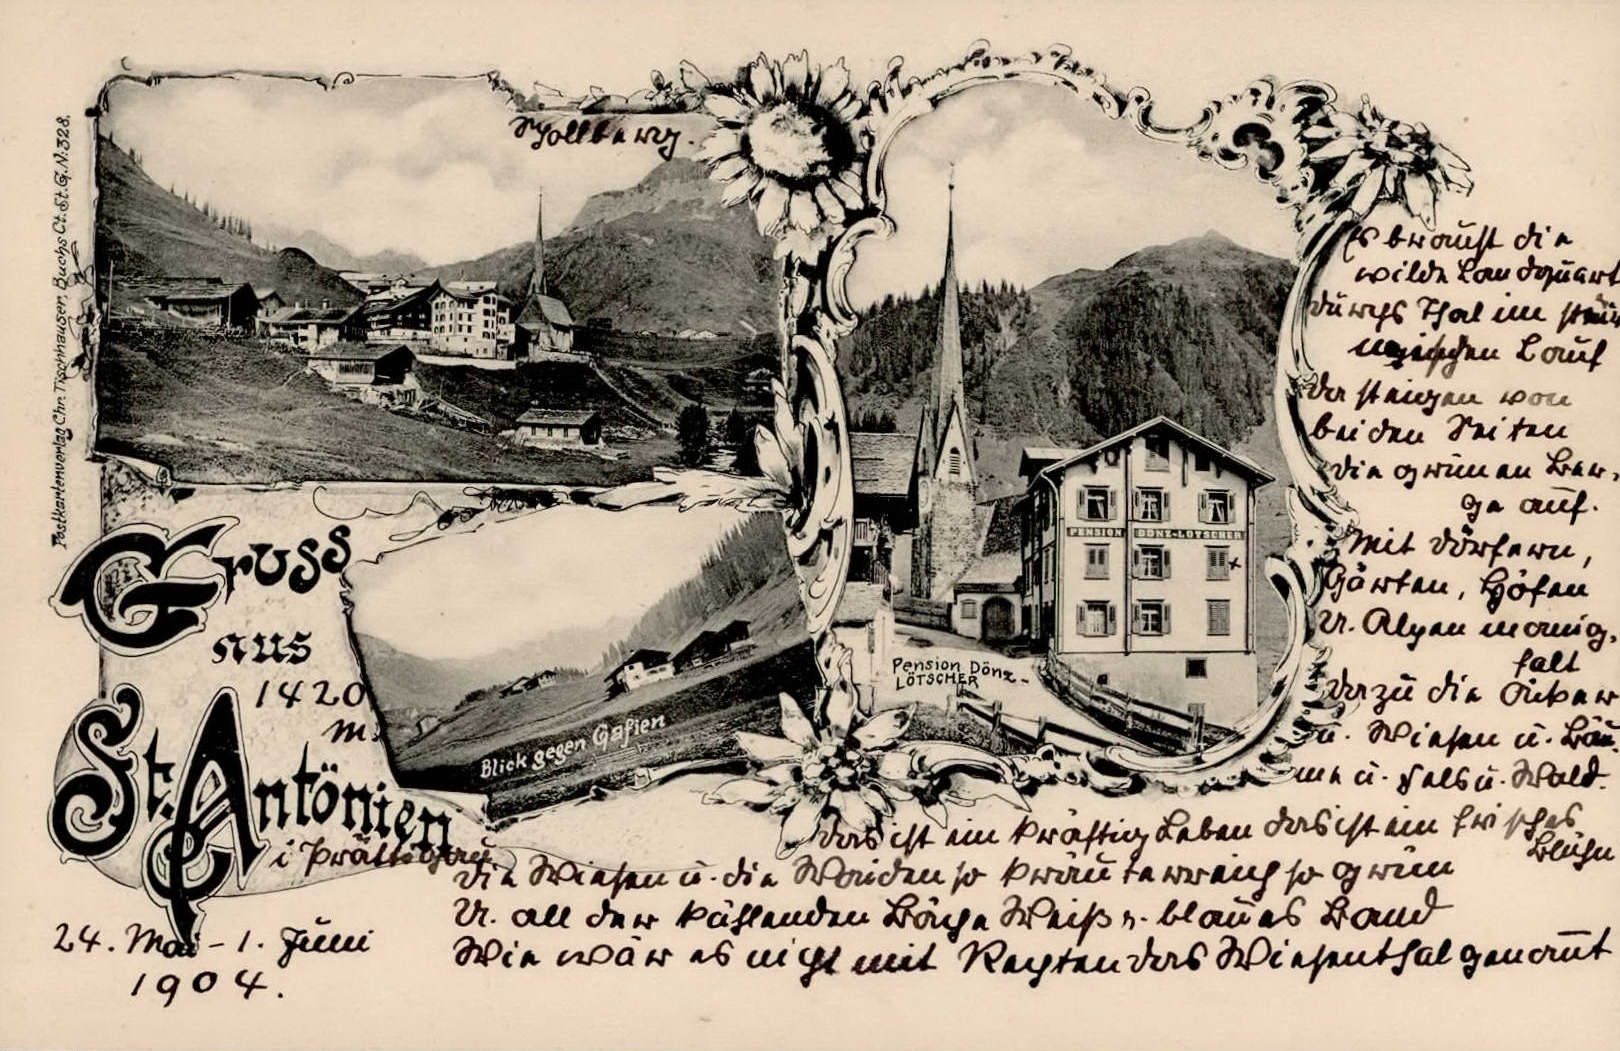 Postkartenverlag Chr. Tischhauser, Buchs Ct. St. G. N: 328.
Gruss
aus
1420
m.
St. Antönien
i Prättigau
24. Mai - 1. Juni
1904.
Blick gegen Gafien
PENSION DÖNZ-LÖTSCHER
Pension Dönz-
LÖTSCHER
Es braust die
wilde Landquart
durchs Thal im
Lauf
Da steigen von
beiden Seiten
die grünen Ber,
ge auf.
Mit Dörfern,
Gärten, Höfen
U. Alpen manig,
falt
dazu die Äcker
u. Wiesen u. Bäu
me u. Fels u. Wald.
das ist ein kräftig Leben das ist ein frisches
Blühn
die Wiesen u. die Weiden so kräuterreich so grün
U. all der kühlenden Bäche Weiß u. blaues Band
Wie wär es nicht mit Rechten das Wiesenthal genannt